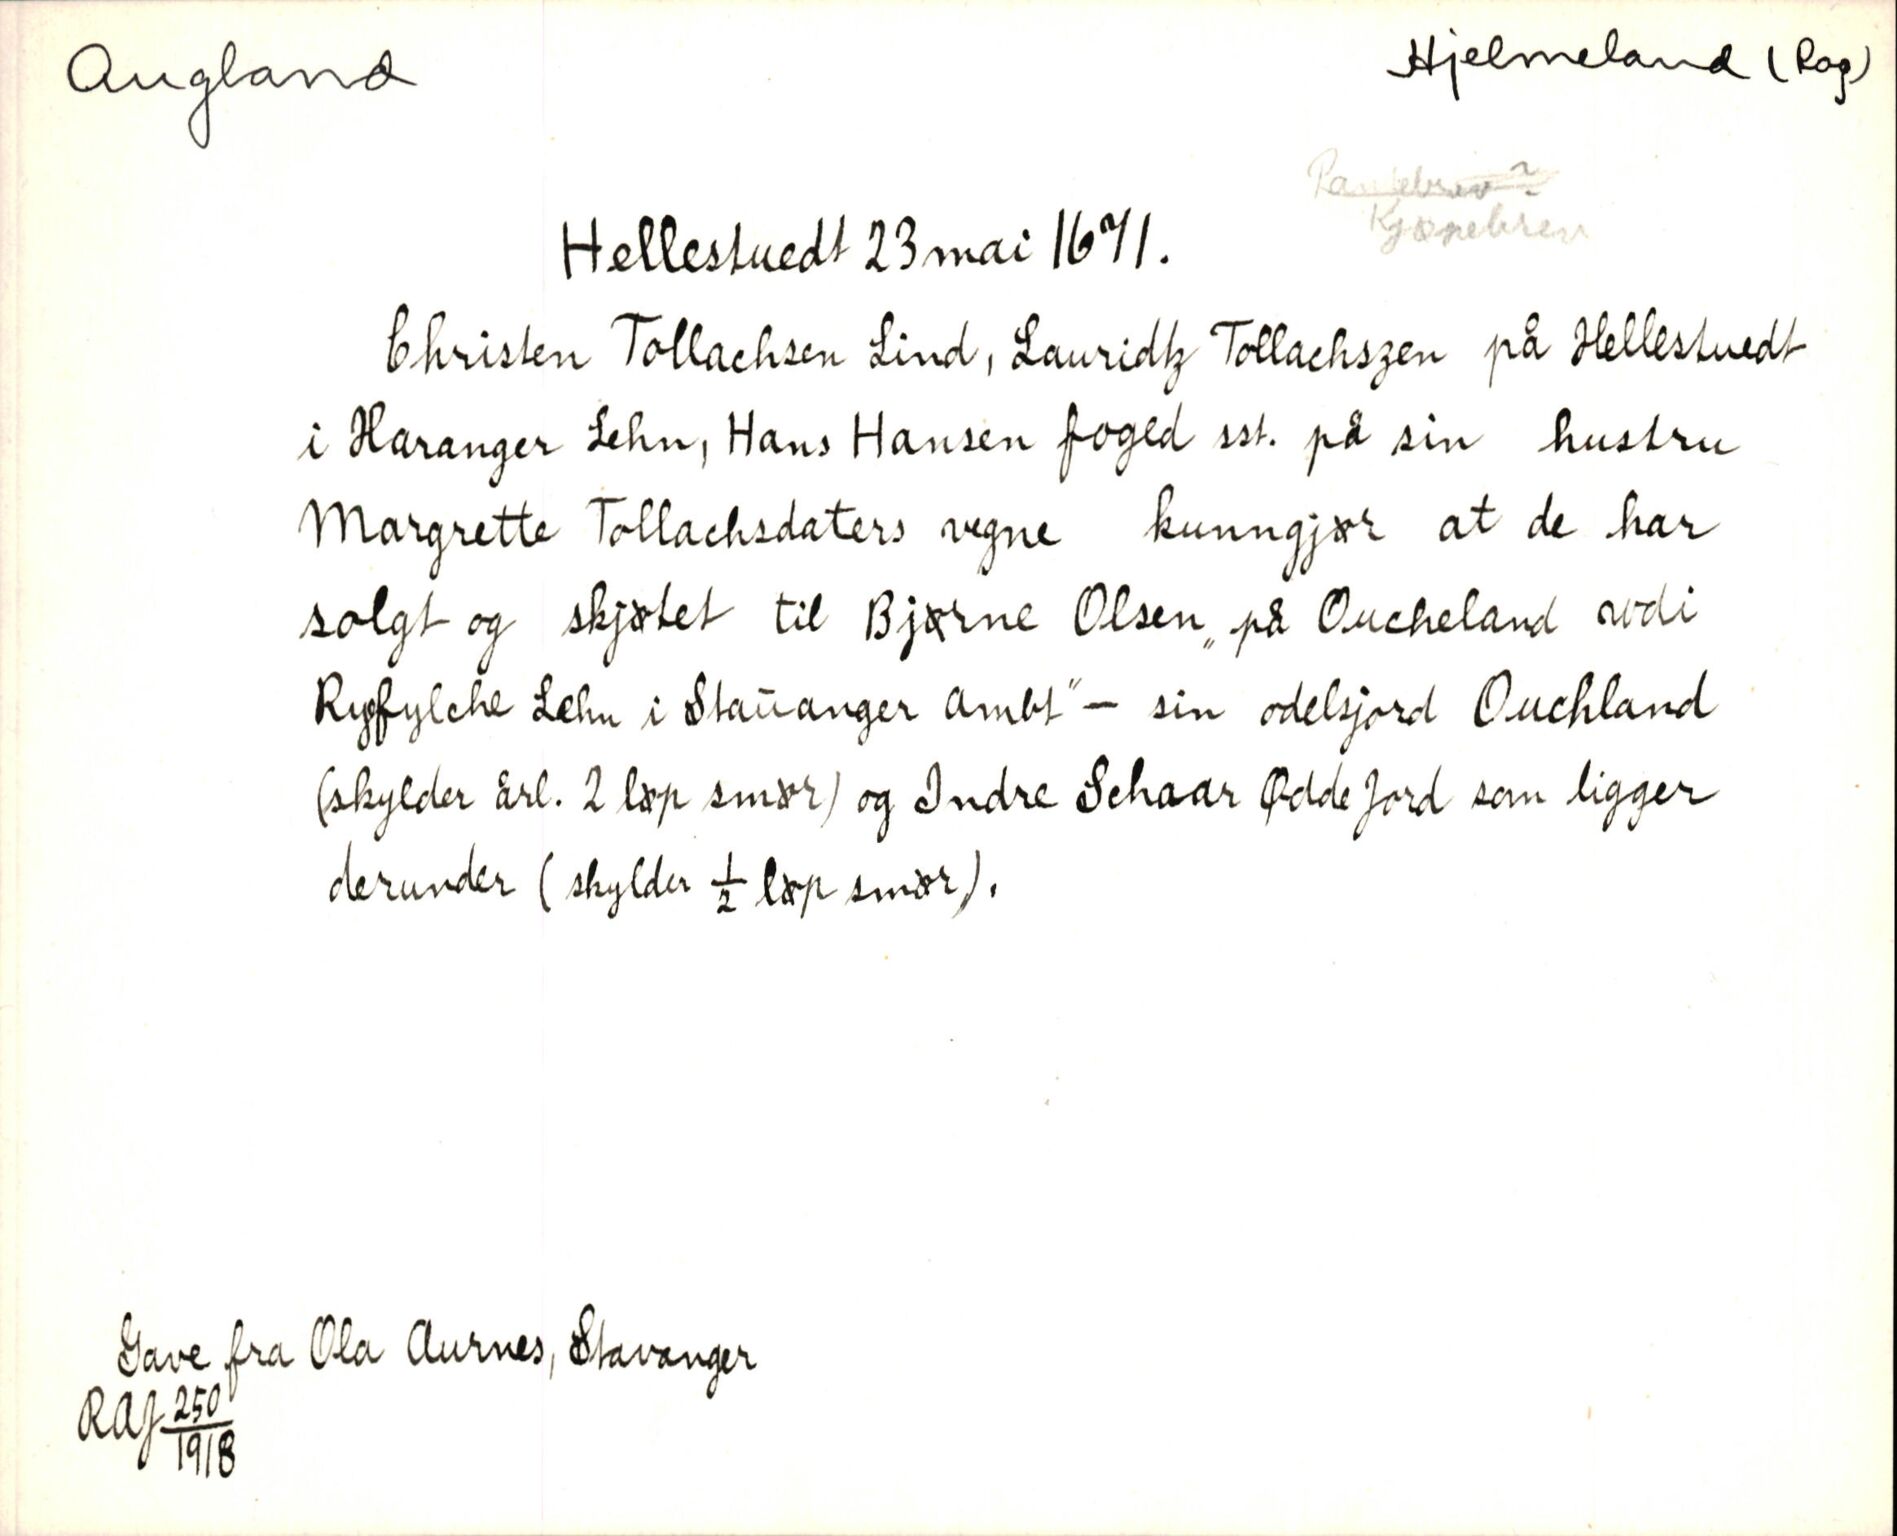 Augland
Hjelmeland (Rog)
Pantebrev?
Kjøpebrev
Hellestuedt 23 mai 1671.
Christen Tollachsen Lind, Lauridtz Tollachszen på Hellestuedt
i Haranger Lehn, Hans Hansen foged sst. på sin hustru
Margrette Tollachsdaters vegne kunngjør at de har
solgt og skjøtet til Bjørne Olsen „på Oucheland udi
Ryfylche Lehn i Staūanger Ambt" – sin odelsjord Ouchland
(skylder årl. 2 løp smør) og Indre Schaar Ødde Jord som ligger
derunder (skylder 1/2 løp smør).
Gave fra Ola Aurnes, Stavanger
RAJ 250/1918